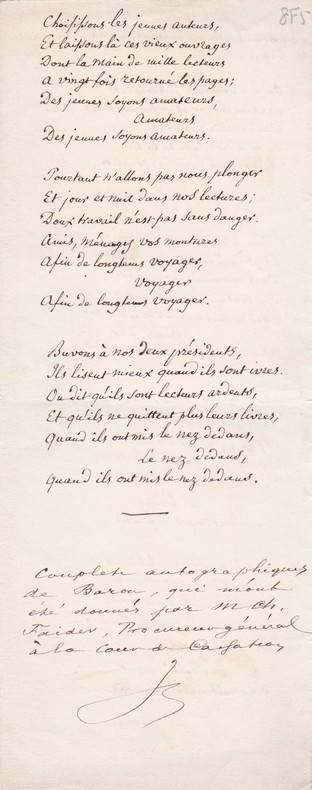 875
Choisissons les jeunes auteurs,
Et laissons là ces vieux ouvrages
Dont la main de mille lecteurs
A vingt fois retourné les pages;
Des jeunes soyons amateurs,
Amateurs
Des jeunes soyons amateurs.
Pourtant n'allons pas nous plonger
Et jour et nuit dans nos lectures;
Doux travail n'est pas sans danger.
Amis, ménagez vos montures
Afin de longtems voyager,
Voyager
Afin de longtems voyager.
Buvons à nos deux présidents,
Ils lisent mieux quand ils sont ivres.
On dit qu'ils sont lecteurs ardents,
Et qu'ils ne quittent plus leurs livres,
Quand ils ont mis le nez dedans,
Le nez dedans,
Quand ils ont mis le nez dedans.
Couplets autographiques
de Baron, qui m'ont
été donnés par M Ch.
Faider, Procureur général
à la Cour de Cassation